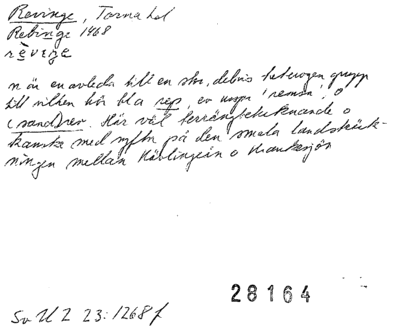 Revinge, Torna hd
Rebinge 1468
rèveŋe
n är en avledn till en stor, delvis heterogen grupp
till vilken hör bl a rep, ev urspr 'remsa', o
(sand)rev. Här väl terrängbetecknande o
kanske med syftn på den smala landsträck-
ningen mellan Kävlingeån o Krankesjön
Sv U 2 23:1268 f
28164